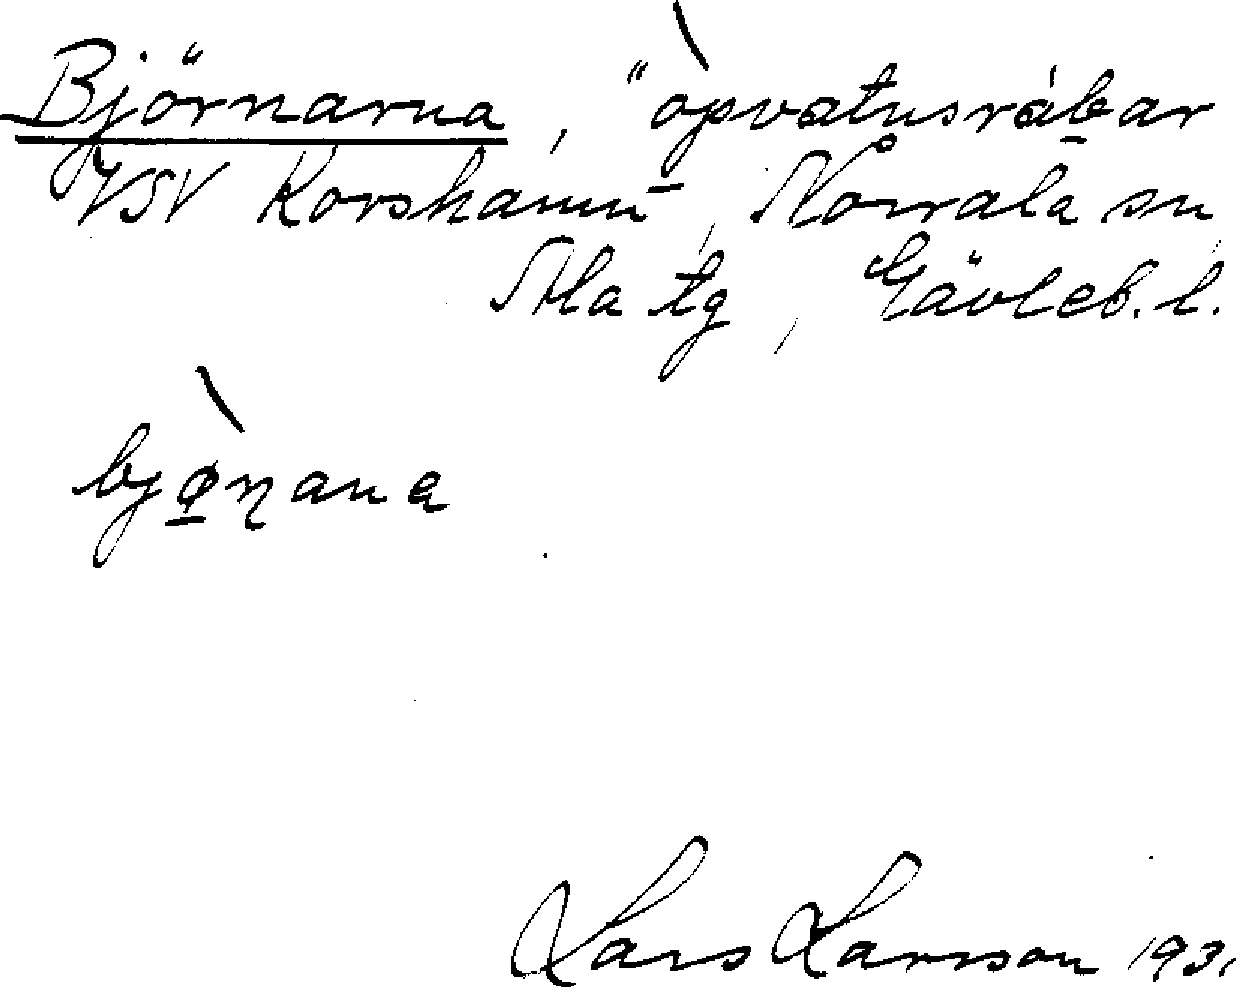 Björnarna, "opvatnsrabar
VSV Korshamn, Norrala sn
Ala tg, Gävleb. l.
bjøn̡ana
Lars Larsson 1931